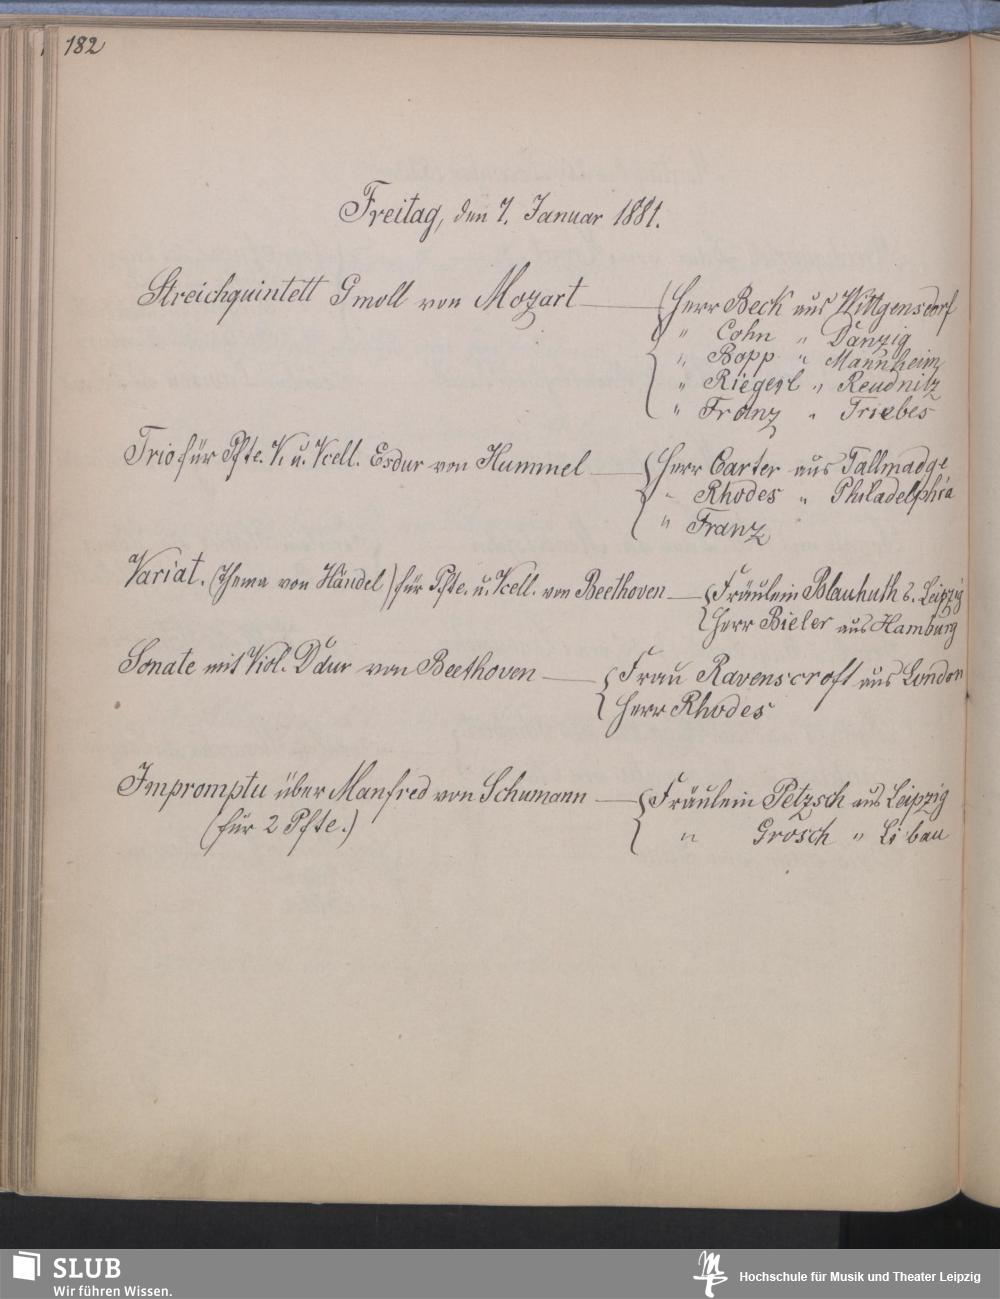 182
Freitag, den 7. Januar 1881.
Streichquintett Gmoll von Mozart — Herr Beck aus Wittgensdorf
" Cohn " Danzig
" Bopp " Mannheim
" Riegerl " Reudnitz
" Franz " Triebes
Trio für Pfte. V. u. Vcell. Esdur von Hummel — Herr Carter aus Tallmadge
" Rhodes " Philadelphia
" Franz
Variat. (Thema von Händel) für Pfte. u. Vcell. von Beethoven — Fräulein Blauhuth a. Leipzig
Herr Bieler aus Hamburg
Sonate mit Viol. Ddur von Beethoven — Frau Ravenscroft aus London
Herr Rhodes
Impromptu über Manfred von Schumann — Fräulein Petzsch aus Leipzig
(für 2 Pfte.) " Grosch " Libau
SLUB
Wir führen Wissen.
Hochschule für Musik und Theater Leipzig